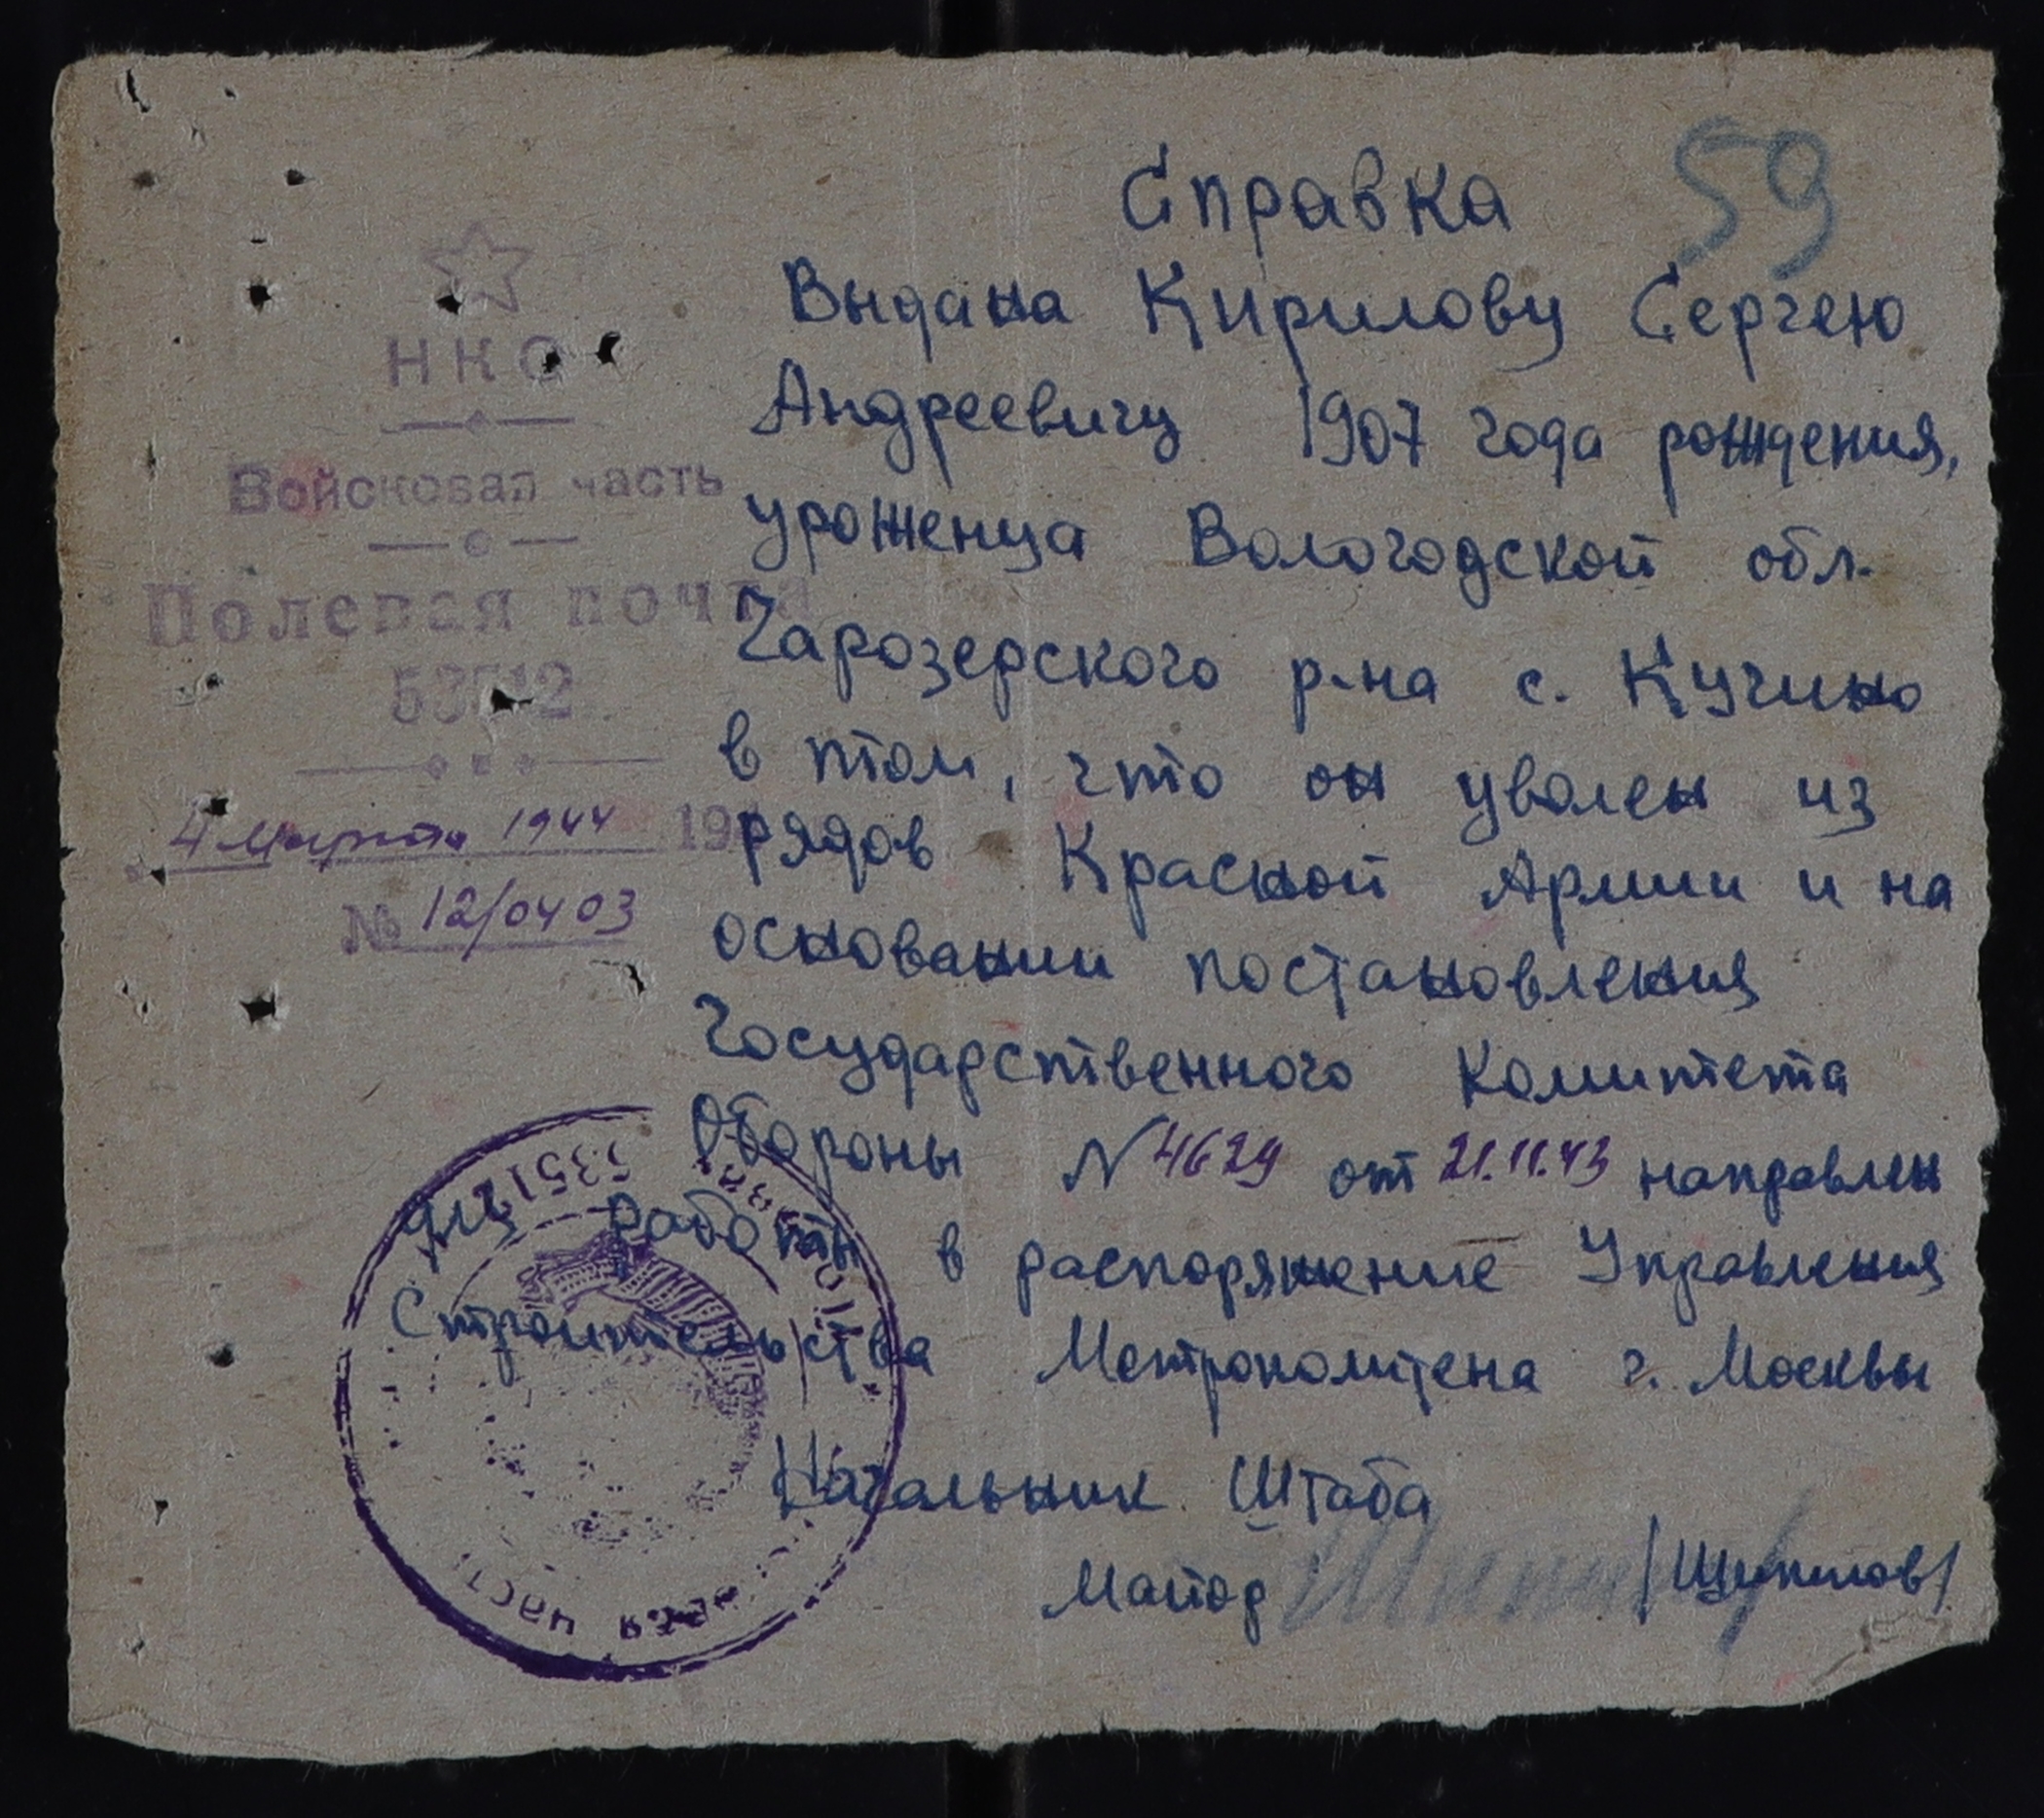 59
НКО
Войсковая часть
Полевая почта
53512
4 Марта 1944 19
№ 12/0403
Справка
Выдана Кирилову Сергею
Андреевичу 1907 года рождения,
уроженца Вологодской обл.
Чарозерского р-на с. Кучино
в том, что он уволен из
рядов Красной Армии и на
основании постановления
Государственного Комитета
Обороны N 4629 от 21.11.43 направлен
для работы в распоряжение Управления
Строительства Метрополитена г. Москвы
Начальник Штаба
Майор /Щипилов/
53512
часть